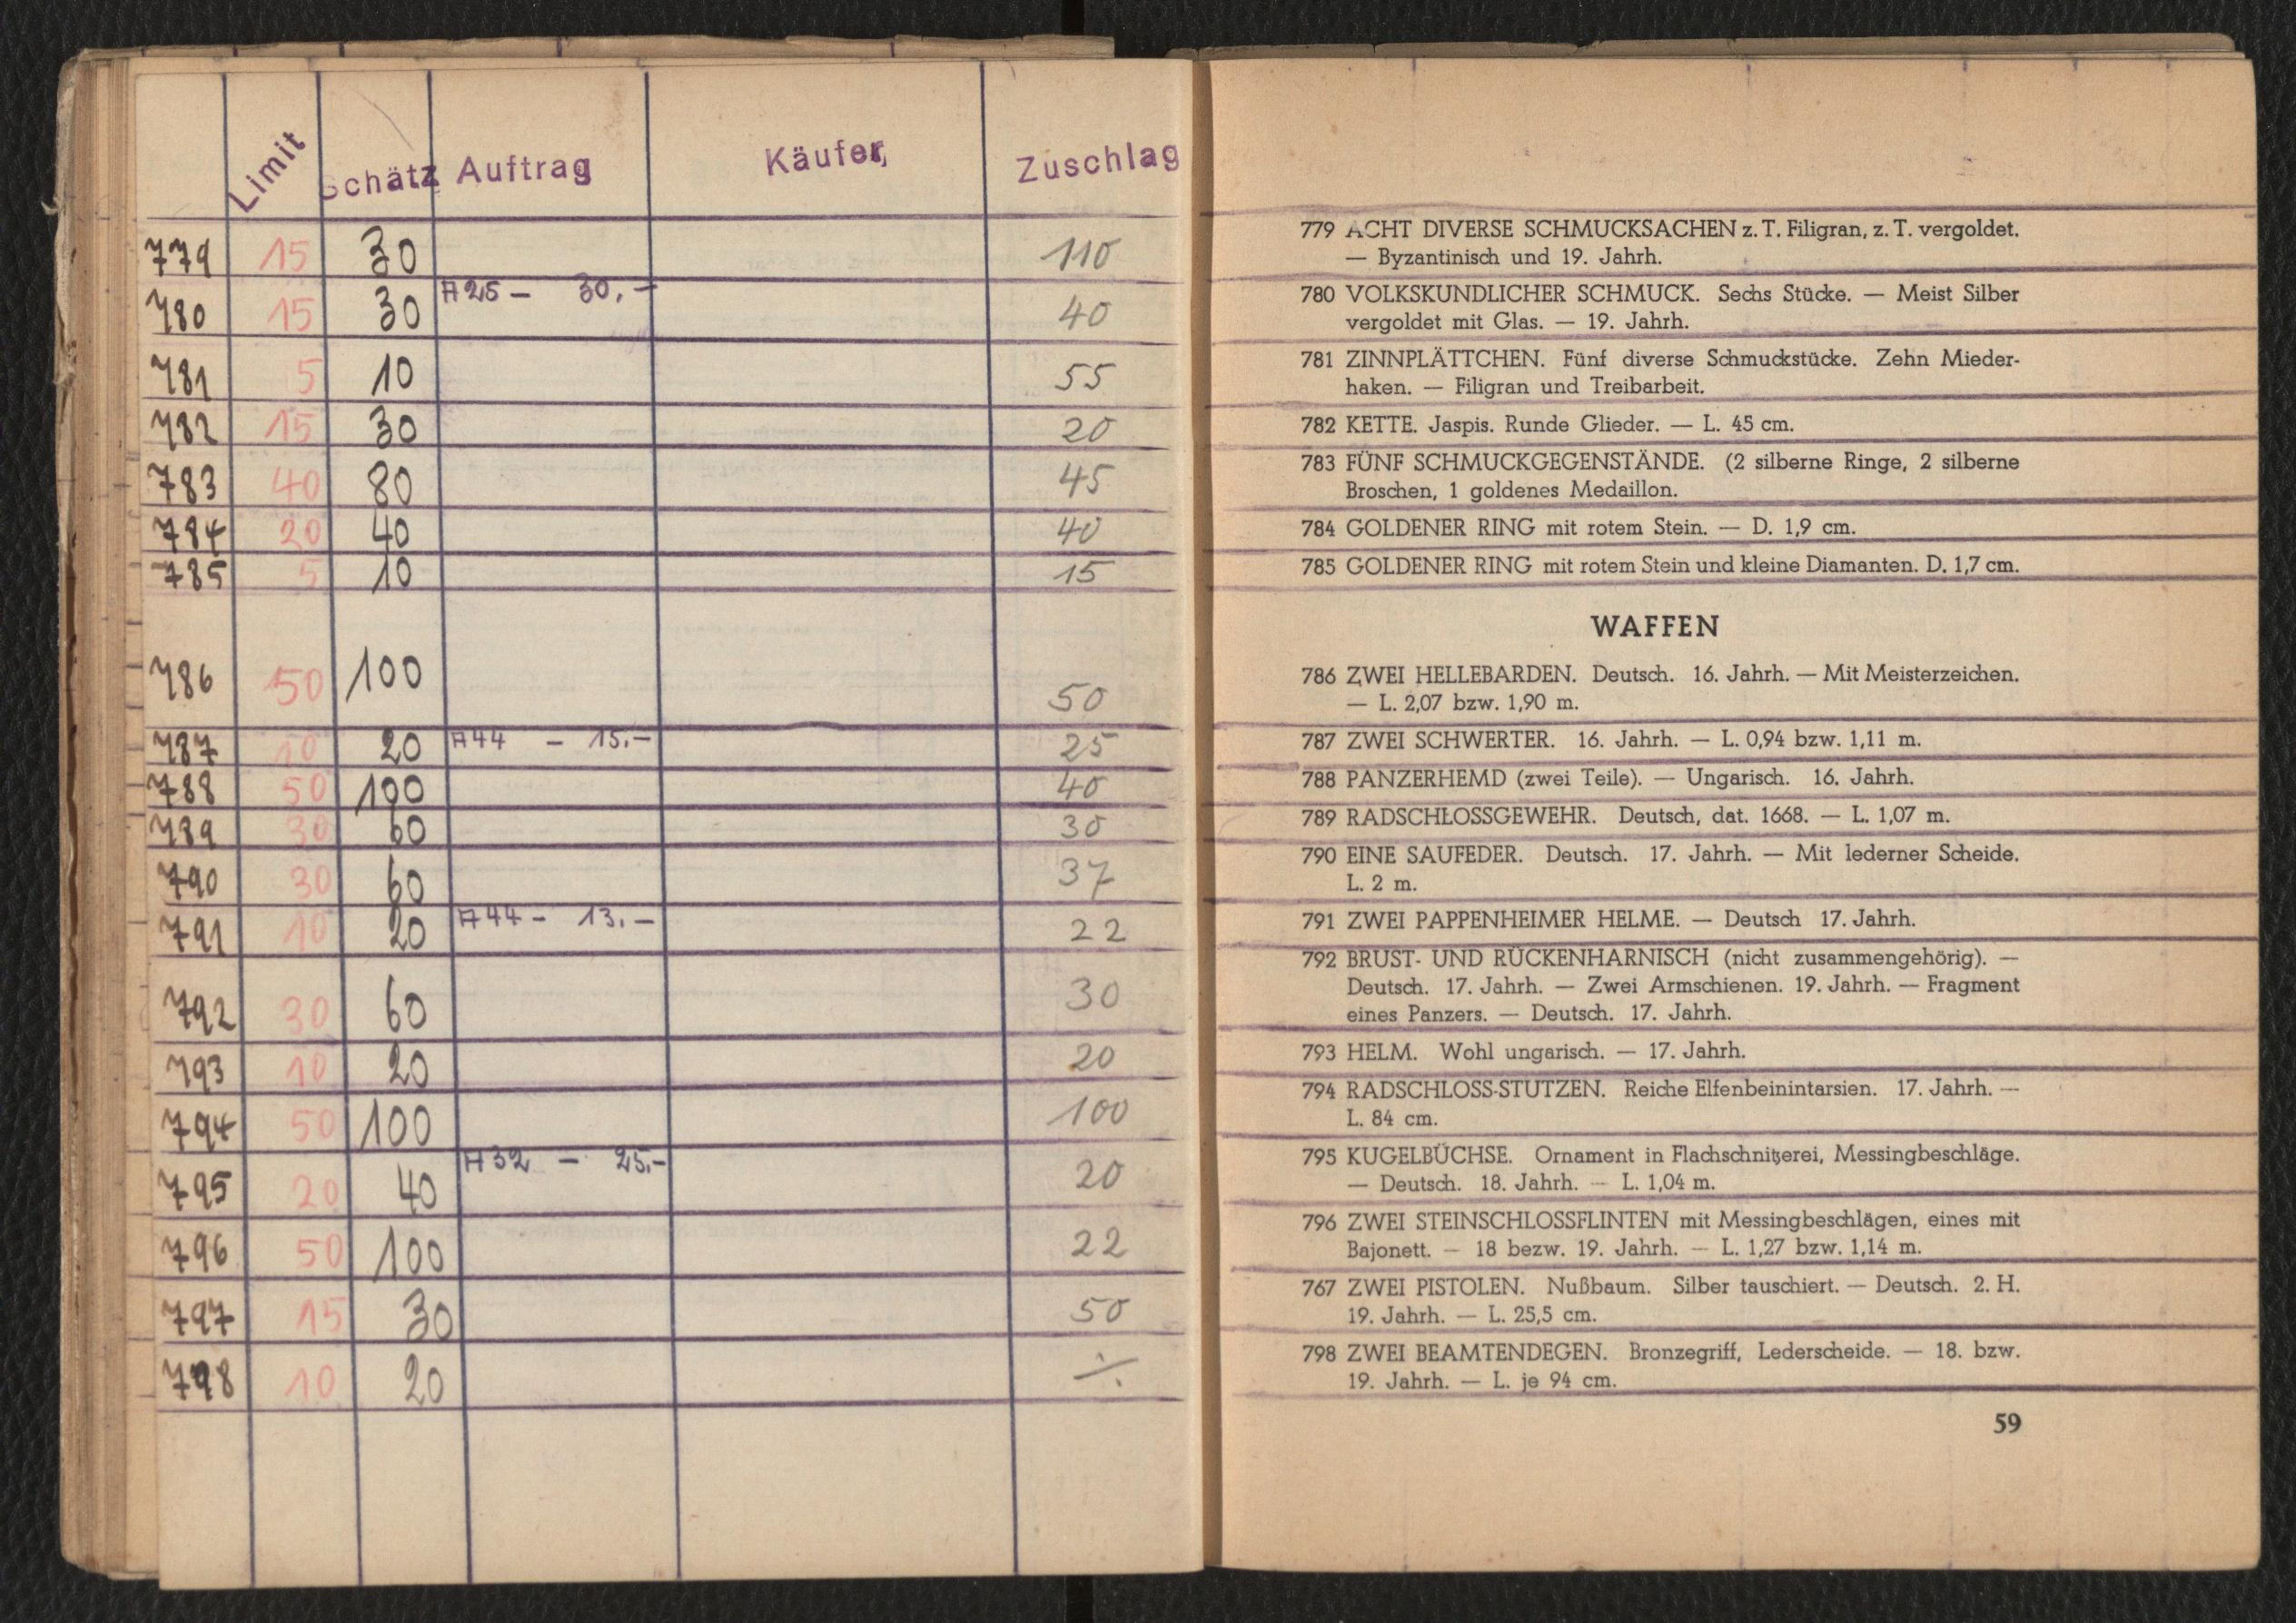 Limit Schätz Auftrag Käufer, Zuschlag
779 15 30 110
780 15 30 A 25 – 30.– 40
781 5 10 55
782 15 30 20
783 40 80 45
784 20 40 40
785 5 10 15
786 50 100 50
787 10 20 A 44 – 15.– 25
788 50 100 40
789 30 60 30
790 30 60 37
791 10 20 A 44 – 13.– 22
792 30 60 30
793 10 20 20
794 50 100 100
795 20 40 A 32 – 25.– 20
796 50 100 22
797 15 30 50
798 10 20 ∕.
779 ACHT DIVERSE SCHMUCKSACHEN z. T. Filigran, z. T. vergoldet.
— Byzantinisch und 19. Jahrh.
780 VOLKSKUNDLICHER SCHMUCK. Sechs Stücke. — Meist Silber
vergoldet mit Glas. — 19. Jahrh.
781 ZINNPLÄTTCHEN. Fünf diverse Schmuckstücke. Zehn Mieder-
haken. — Filigran und Treibarbeit.
782 KETTE. Jaspis. Runde Glieder. — L. 45 cm.
783 FÜNF SCHMUCKGEGENSTÄNDE. (2 silberne Ringe, 2 silberne
Broschen, 1 goldenes Medaillon.
784 GOLDENER RING mit rotem Stein. — D. 1,9 cm.
785 GOLDENER RING mit rotem Stein und kleine Diamanten. D. 1,7 cm.
WAFFEN
786 ZWEI HELLEBARDEN. Deutsch. 16. Jahrh. — Mit Meisterzeichen.
— L. 2,07 bzw. 1,90 m.
787 ZWEI SCHWERTER. 16. Jahrh. — L. 0,94 bzw. 1,11 m.
788 PANZERHEMD (zwei Teile). — Ungarisch. 16. Jahrh.
789 RADSCHLOSSGEWEHR. Deutsch, dat. 1668. — L. 1,07 m.
790 EINE SAUFEDER. Deutsch. 17. Jahrh. — Mit lederner Scheide.
L. 2 m.
791 ZWEI PAPPENHEIMER HELME. — Deutsch 17. Jahrh.
792 BRUST- UND RÜCKENHARNISCH (nicht zusammengehörig). —
Deutsch. 17. Jahrh. — Zwei Armschienen. 19. Jahrh. — Fragment
eines Panzers. — Deutsch. 17. Jahrh.
793 HELM. Wohl ungarisch. — 17. Jahrh.
794 RADSCHLOSS-STUTZEN. Reiche Elfenbeinintarsien. 17. Jahrh. —
L. 84 cm.
795 KUGELBÜCHSE. Ornament in Flachschnitzerei, Messingbeschläge.
— Deutsch. 18. Jahrh. — L. 1,04 m.
796 ZWEI STEINSCHLOSSFLINTEN mit Messingbeschlägen, eines mit
Bajonett. — 18 bezw. 19. Jahrh. — L. 1,27 bzw. 1,14 m.
767 ZWEI PISTOLEN. Nußbaum. Silber tauschiert. — Deutsch. 2. H.
19. Jahrh. — L. 25,5 cm.
798 ZWEI BEAMTENDEGEN. Bronzegriff, Lederscheide. — 18. bzw.
19. Jahrh. — L. je 94 cm.
59